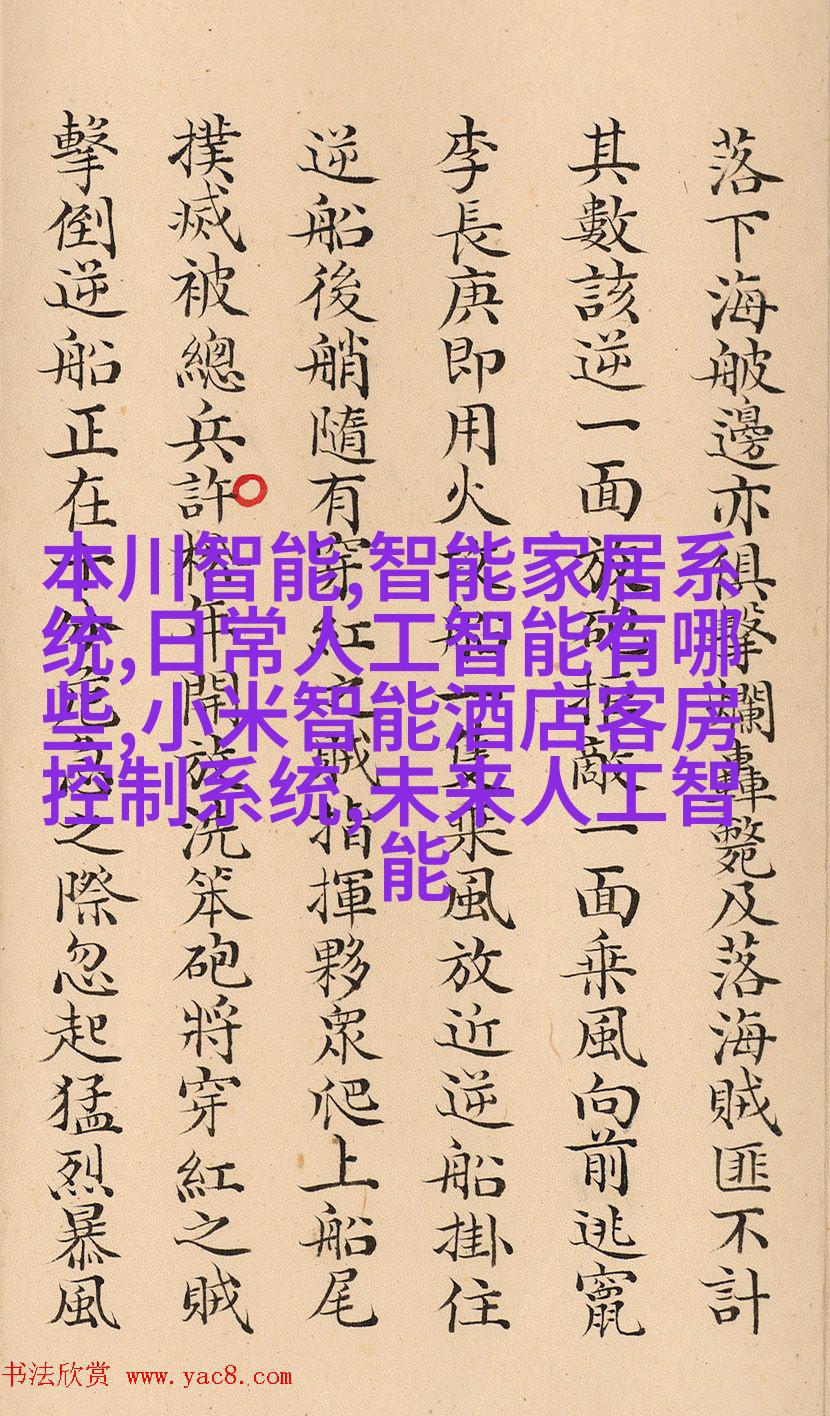 落下海邊亦俱擊爛轟斃及落海賊匪不計
其數該逆一面放砲拒敵一面乘風向前逃竄
李長庚即用火攻船一隻乘風放近逆船掛住
逆船後艄隨有穿紅之賊指揮夥眾爬上船尾
撲滅被總兵許松年開放洗笨砲將穿紅之賊
擊倒逆船正在十分危急之際忽起猛烈暴風
本川智能,智能家居系
统,日常人工智能有哪
些,小米智能酒店客房
控制系统,未来人工智
能
书法欣赏 www.yac8.com